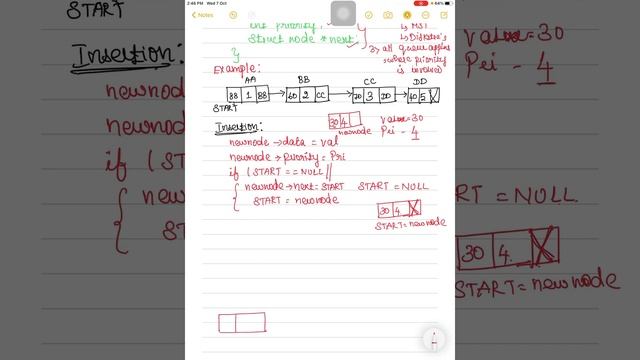 2:46 PM Wed 7 Oct
64%
Notes
int priority;
struct node *next;
}
↳ MST
↳ Dijkstra's
3) all queue applns
where priority
is involved
Example:
AA BB CC DD
88 1 88 60 2 CC 20 3 DD 40 5 X
START
Insertion:
30 4
newnode
value=30
Pri - 4
newnode → data = val
newnode → priority = Pri
if (START == NULL ||
{ newnode → next = START START = NULL
START = newnode
30 4 X
START = newnode
START
Insertion:
newnod
newnod
if (STA
{ new
ST
value=30
Pri - 4
RT = NULL.
30 4 X
START = newnode